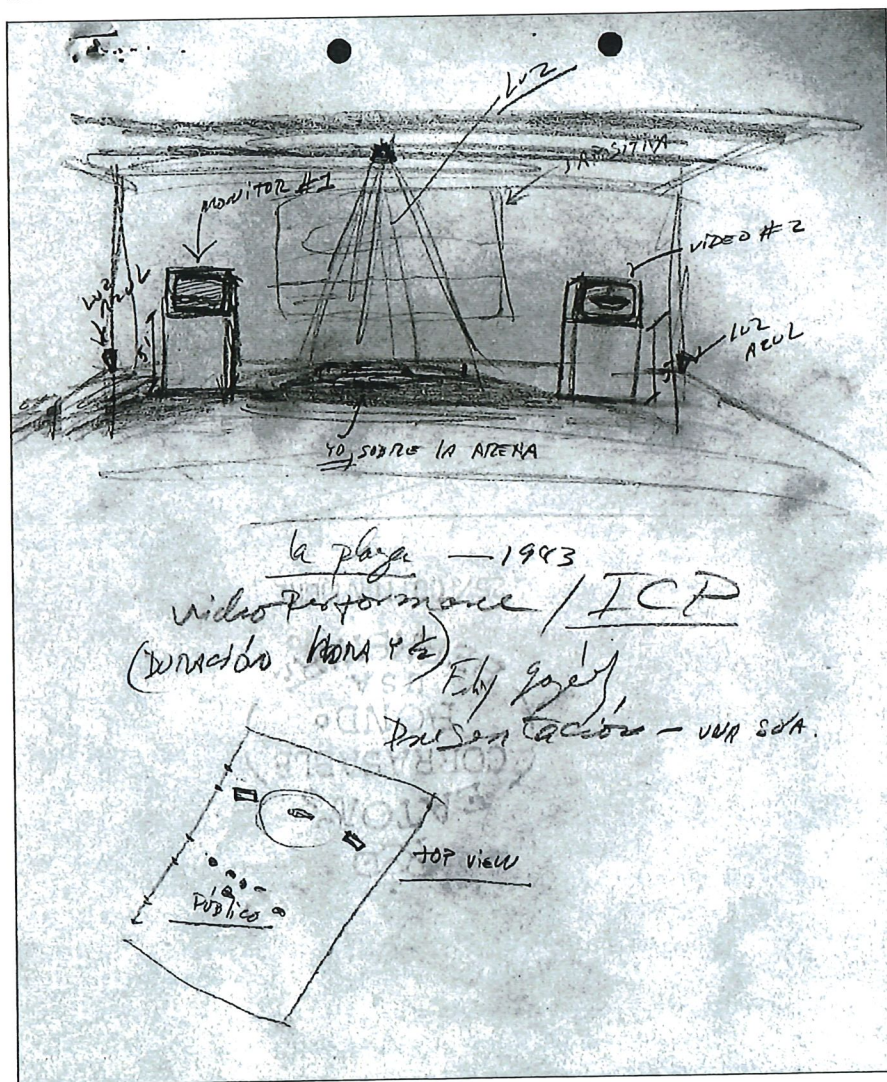 LUZ
DIAPOSITIVA
MONITOR #1
VIDEO #2
LUZ AZUL
5'
LUZ
AZUL
5'
YO, SOBRE LA ARENA
la playa — 1983
video Performance / ICP
(DURACIÓN HORA Y ½)
Presentación – UNA SOLA.
TOP VIEW
PÚBLICO